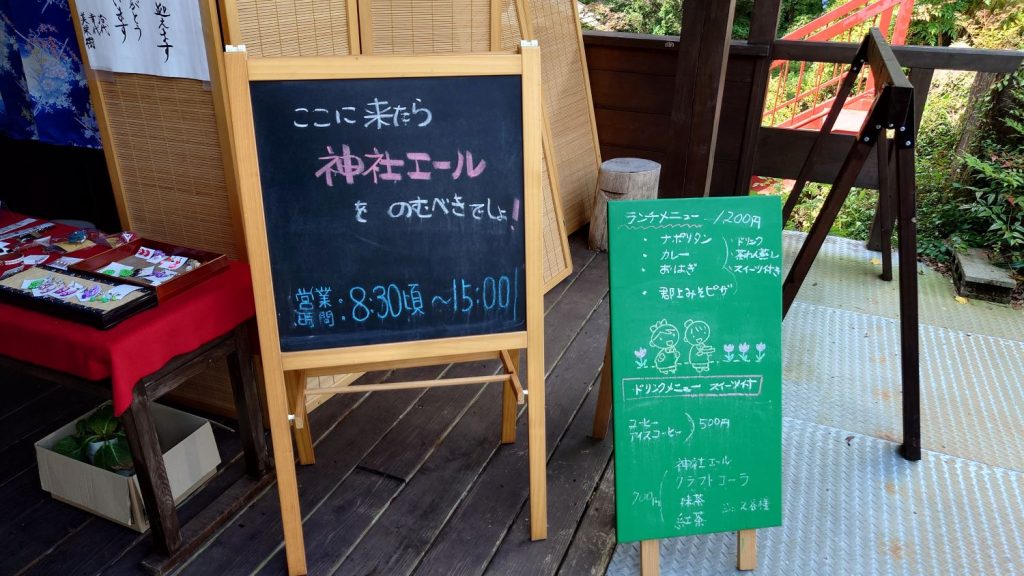 ここに来たら
神社エール
を のむべきでしょ!
営業時間:8:30頃〜15:00
ランチメニュー 1,200円
・ナポリタン
・カレー
・おはぎ
ドリンク
茶わん蒸し
スイーツ付き
・郡上みそピザ
ドリンクメニュー スイーツ付
コーヒー
アイスコーヒー
500円
神社エール
クラフトコーラ
抹茶
紅茶